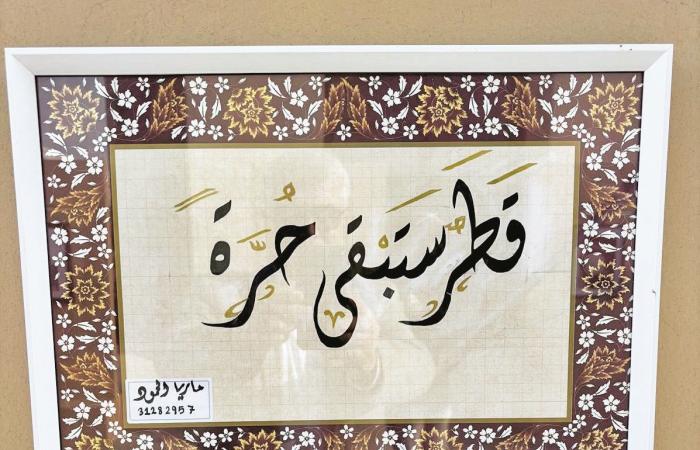 قَطَرٌ سَتَبْقَى حُرَّةً
ماريا الحمود
31282957